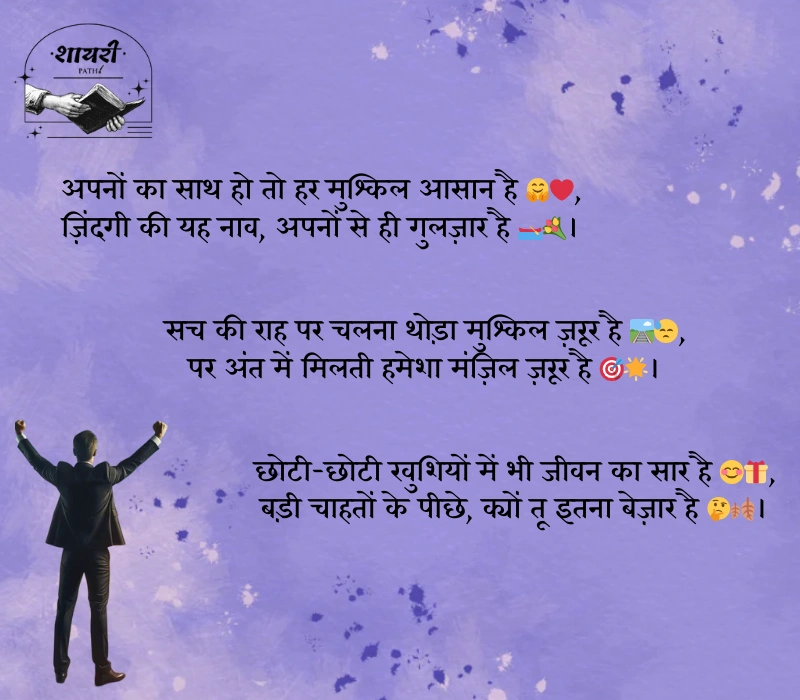 ·शायरी·
PATH
अपनों का साथ हो तो हर मुश्किल आसान है 🤗❤️,
ज़िंदगी की यह नाव, अपनों से ही गुलज़ार है 🚣💐।
सच की राह पर चलना थोड़ा मुश्किल ज़रूर है 🛤️😓,
पर अंत में मिलती हमेशा मंज़िल ज़रूर है 🎯🌟।
छोटी-छोटी खुशियों में भी जीवन का सार है 😊🎁,
बड़ी चाहतों के पीछे, क्यों तू इतना बेज़ार है 🤔🍂।